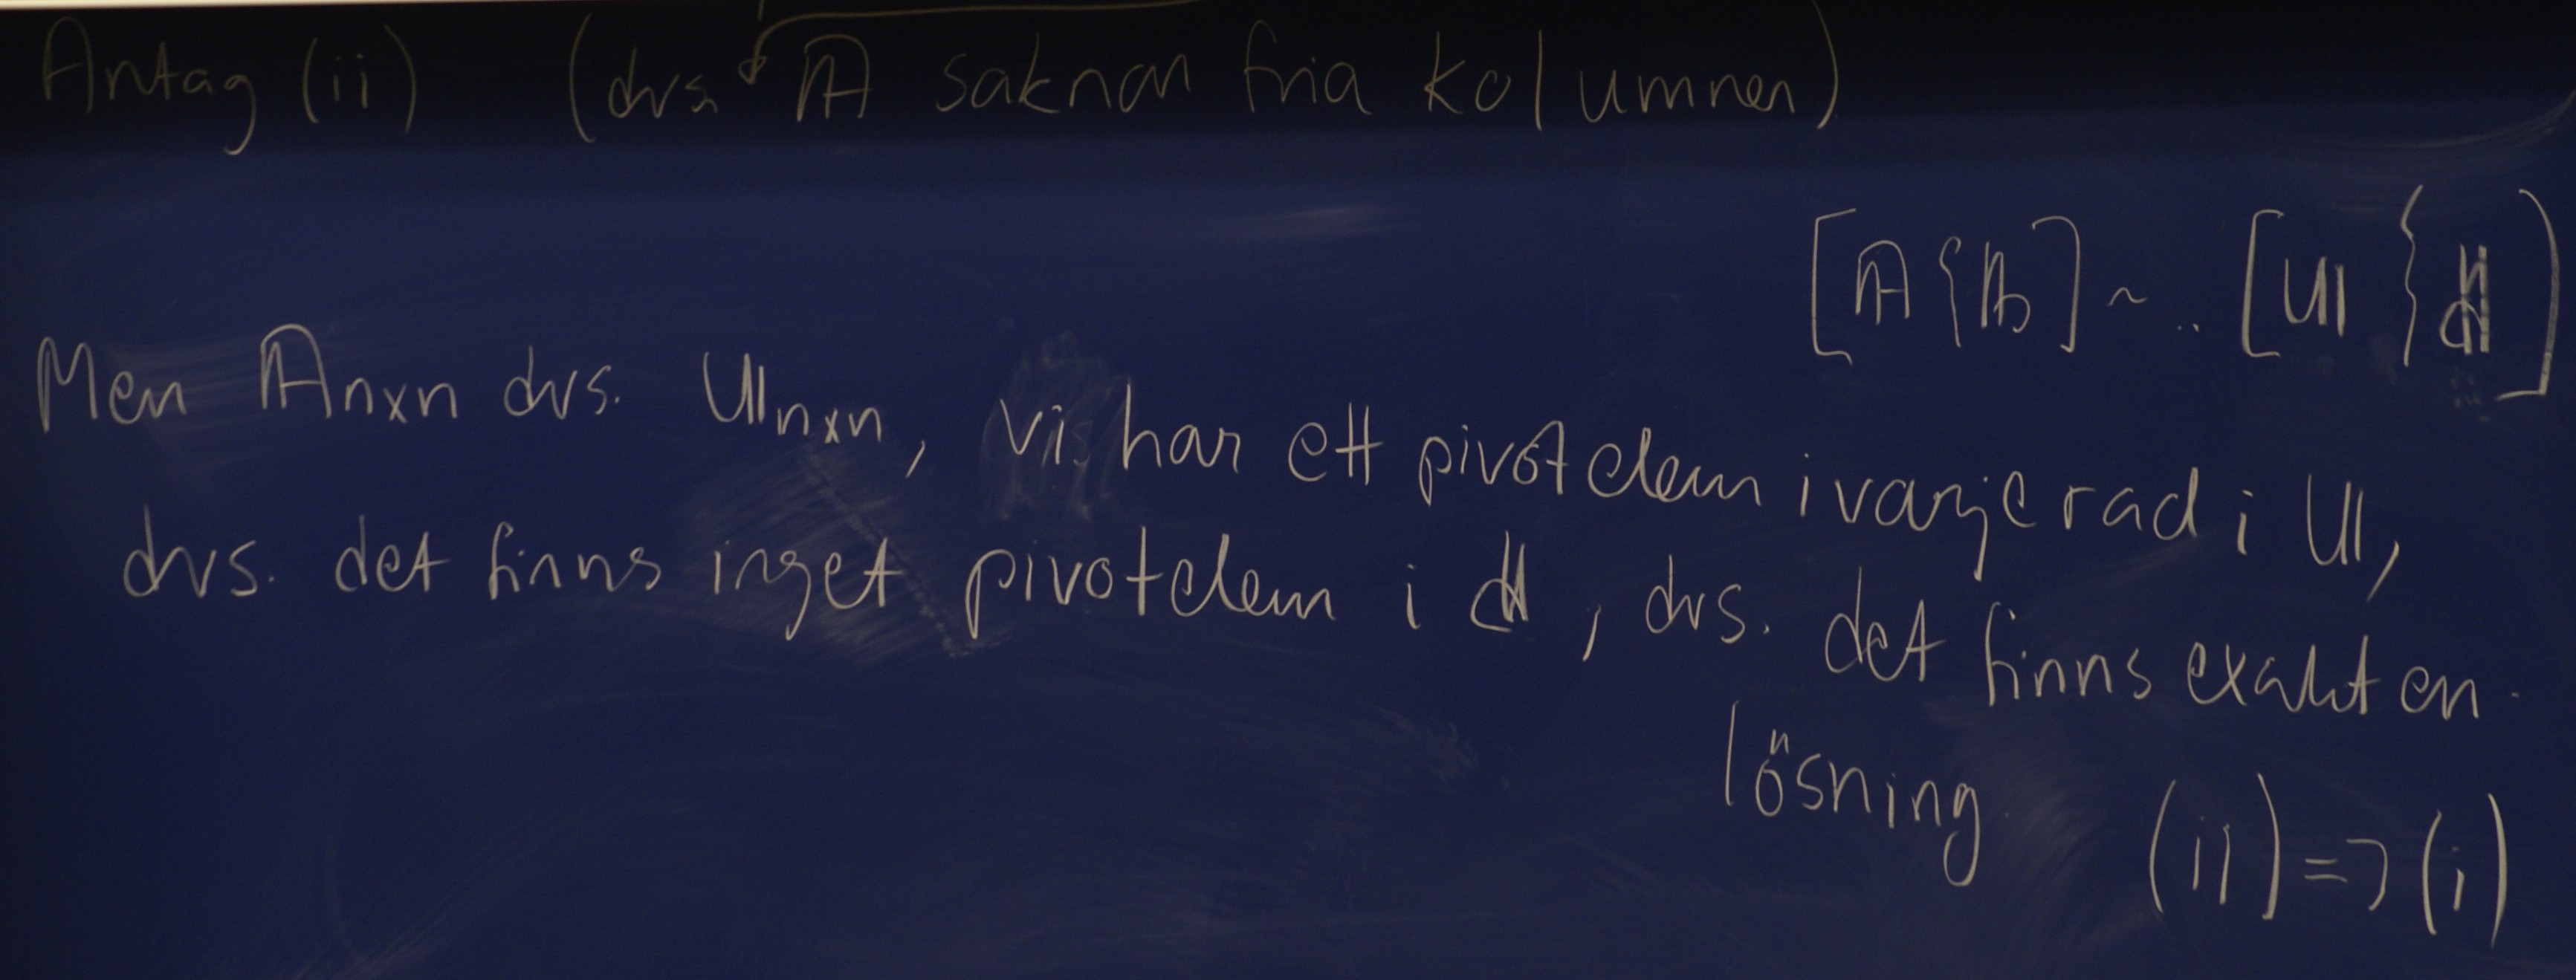 Antag (ii) (dvs. A saknar fria kolumner)
[A { b] ~ .. [U { d]
Men Anxn dvs. Unxn, vi har ett pivotelem i varje rad i U,
dvs. det finns inget pivotelem i d, dvs. det finns exakt en
lösning. (ii) => (i)